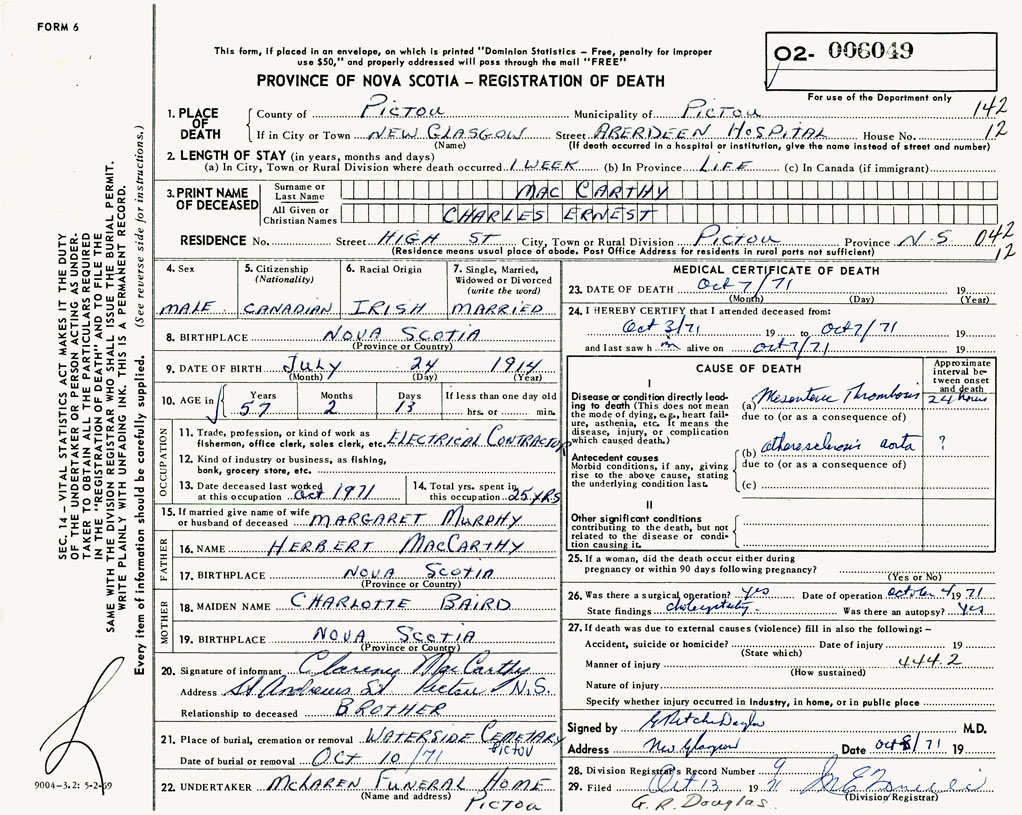 FORM 6
This form, if placed in an envelope, on which is printed "Dominion Statistics – Free, penalty for improper
use $50," and properly addressed will pass through the mail "FREE"
PROVINCE OF NOVA SCOTIA – REGISTRATION OF DEATH
02- 006049
For use of the Department only
142
12
1. PLACE OF DEATH
County of Pictou Municipality of Pictou
If in City or Town NEW GLASGOW Street ABERDEEN HOSPITAL House No.
(Name) (If death occurred in a hospital or institution, give the name instead of street and number)
2. LENGTH OF STAY (in years, months and days)
(a) In City, Town or Rural Division where death occurred 1 WEEK (b) In Province LIFE (c) In Canada (if immigrant)
3. PRINT NAME OF DECEASED
Surname or Last Name MAC CARTHY
All Given or Christian Names CHARLES ERNEST
RESIDENCE No. Street HIGH ST City, Town or Rural Division Pictou Province N.S 042
12
(Residence means usual place of abode. Post Office Address for residents in rural parts not sufficient)
4. Sex
MALE
5. Citizenship
(Nationality)
CANADIAN
6. Racial Origin
IRISH
7. Single, Married,
Widowed or Divorced
(write the word)
MARRIED
8. BIRTHPLACE NOVA SCOTIA
(Province or Country)
9. DATE OF BIRTH JULY 24 1914
(Month) (Day) (Year)
10. AGE in Years Months Days If less than one day old
57 2 13 hrs. or min.
OCCUPATION
11. Trade, profession, or kind of work as
fisherman, office clerk, sales clerk, etc. ELECTRICAL CONTRACTOR
12. Kind of industry or business, as fishing,
bank, grocery store, etc.
13. Date deceased last worked
at this occupation Oct 1971
14. Total yrs. spent in
this occupation 25 YRS
15. If married give name of wife
or husband of deceased MARGARET MURPHY
FATHER
16. NAME HERBERT MACCARTHY
17. BIRTHPLACE NOVA SCOTIA
(Province or Country)
MOTHER
18. MAIDEN NAME CHARLOTTE BAIRD
19. BIRTHPLACE NOVA SCOTIA
(Province or Country)
20. Signature of informant Clarence MacCarthy
Address St Andrews St Pictou N.S.
Relationship to deceased BROTHER
21. Place of burial, cremation or removal WATERSIDE CEMETARY
Pictou
Date of burial or removal OCT 10/71
22. UNDERTAKER McLAREN FUNERAL HOME
(Name and address) Pictou
MEDICAL CERTIFICATE OF DEATH
23. DATE OF DEATH Oct 7/71 19
(Month) (Day) (Year)
24. I HEREBY CERTIFY that I attended deceased from:
Oct 3/71 19 to Oct 7/71 19
and last saw him alive on Oct 7/71 19
CAUSE OF DEATH
Approximate
interval be-
tween onset
and death
I
Disease or condition directly lead-
ing to death (This does not mean
the mode of dying, e.g., heart fail-
ure, asthenia, etc. It means the
disease, injury, or complication
which caused death.)
(a) Mesenteric Thrombosis 24 hours
due to (or as a consequence of)
Antecedent causes
Morbid conditions, if any, giving
rise to the above cause, stating
the underlying condition last.
(b) atherosclerosis aorta ?
due to (or as a consequence of)
(c)
II
Other significant conditions
contributing to the death, but not
related to the disease or condi-
tion causing it.
25. If a woman, did the death occur either during
pregnancy or within 90 days following pregnancy?
(Yes or No)
26. Was there a surgical operation? yes Date of operation october 4 19 71
State findings Was there an autopsy? Yes
27. If death was due to external causes (violence) fill in also the following: –
Accident, suicide or homicide? Date of injury 19
(State which)
Manner of injury 444.2
(How sustained)
Nature of injury
Specify whether injury occurred in Industry, in home, or in public place
Signed by M.D.
Address New Glasgow Date Oct 8/71 19
28. Division Registrar's Record Number 9
29. Filed Oct 13 19 71
(Division Registrar)
G. R. Douglas.
SEC. 14 – VITAL STATISTICS ACT MAKES IT THE DUTY
OF THE UNDERTAKER OR PERSON ACTING AS UNDER-
TAKER TO OBTAIN ALL THE PARTICULARS REQUIRED
IN THE "REGISTRATION OF DEATH" AND TO FILE THE
SAME WITH THE DIVISION REGISTRAR WHO SHALL ISSUE THE BURIAL PERMIT.
WRITE PLAINLY WITH UNFADING INK. THIS IS A PERMANENT RECORD.
Every item of information should be carefully supplied. (See reverse side for instructions.)
9004-3.2: 5-2-69